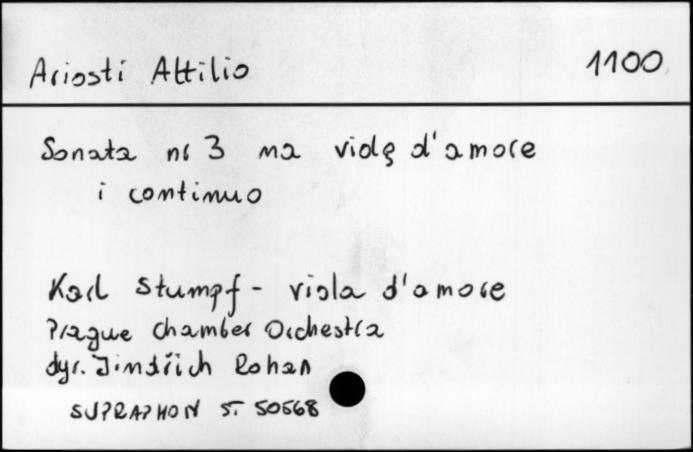 Ariosti Attilio 1100
Sonata nr 3 na violę d'amore
i continuo
Karl Stumpf - viola d'amore
Prague Chamber Orchestra
dyr. Jindřich Rohan
SUPRAPHON ST 50568